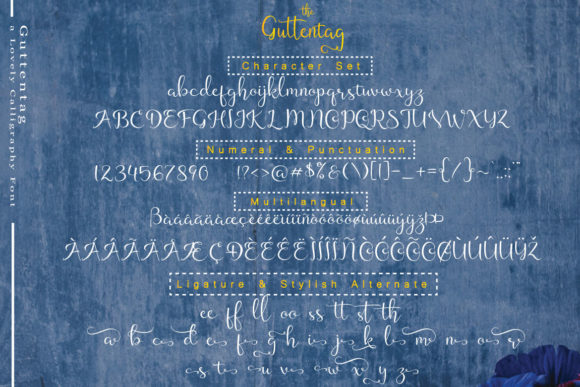 Guttentag
a Lovely Calligraphy Font
the
Guttentag
Character Set
abcdefghijklmnopqrstuvwxyz
ABCDEFGHIJKLMNOPQRSTUVWXYZ
Numeral & Punctuation
1234567890 !?<>@#$%&(\)[]-_+={/}~
Multilangual
ÀÁÂÃÄÅÆÇÐÈÉÊËÌÍÎÏÑÒÓÔÕÖØÙÚÛÜŸÝŽ
Ligature & Stylish Alternate
ee ff ll oo ss tt st th
a b c d e f g h i j k l m n o r
s t u v w x y z